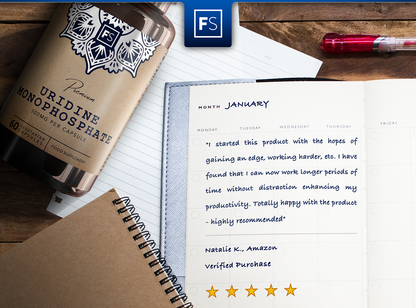 FS
FS
Premium
URIDINE
MONOPHOSPHATE
300MG PER CAPSULE
60
VEGETARIAN
CAPSULES
FOOD SUPPLEMENT
MONTH JANUARY
MONDAY TUESDAY WEDNESDAY THURSDAY FRIDAY
"I started this product with the hopes of
gaining an edge, working harder, etc. I have
found that I can now work longer periods of
time without distraction enhancing my
productivity. Totally happy with the product
- highly recommended"
Natalie K., Amazon
Verified Purchase